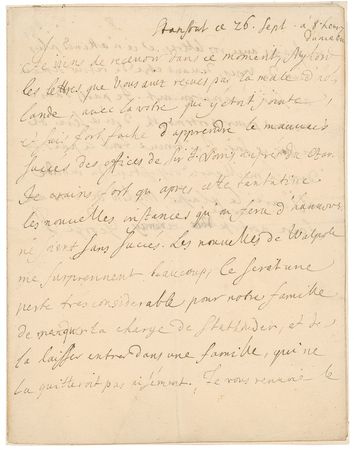 ce 26. Sept. a 8 heur
du matin
Je viens de recevoir dans ce moment, Mylord
les lettres que Vous avez recues par la male d'
lande avec la votre qui y etoit jointe
Je suis fort fache d'apprendre le mauvais
succes des offices de
Je crains fort qu'apres cette tentative
les nouvelles instances qu'on fera d'hannovre
ne soient sans succes. Les nouvelles de Walpole
me surprennent beaucoup, ce seroit une
perte tres considerable pour notre famille
de manquer la charge de Stathouder, et de
la laisser entrer dans une famille, qui ne
la quitteroit pas aisément. Je vous renvoie le